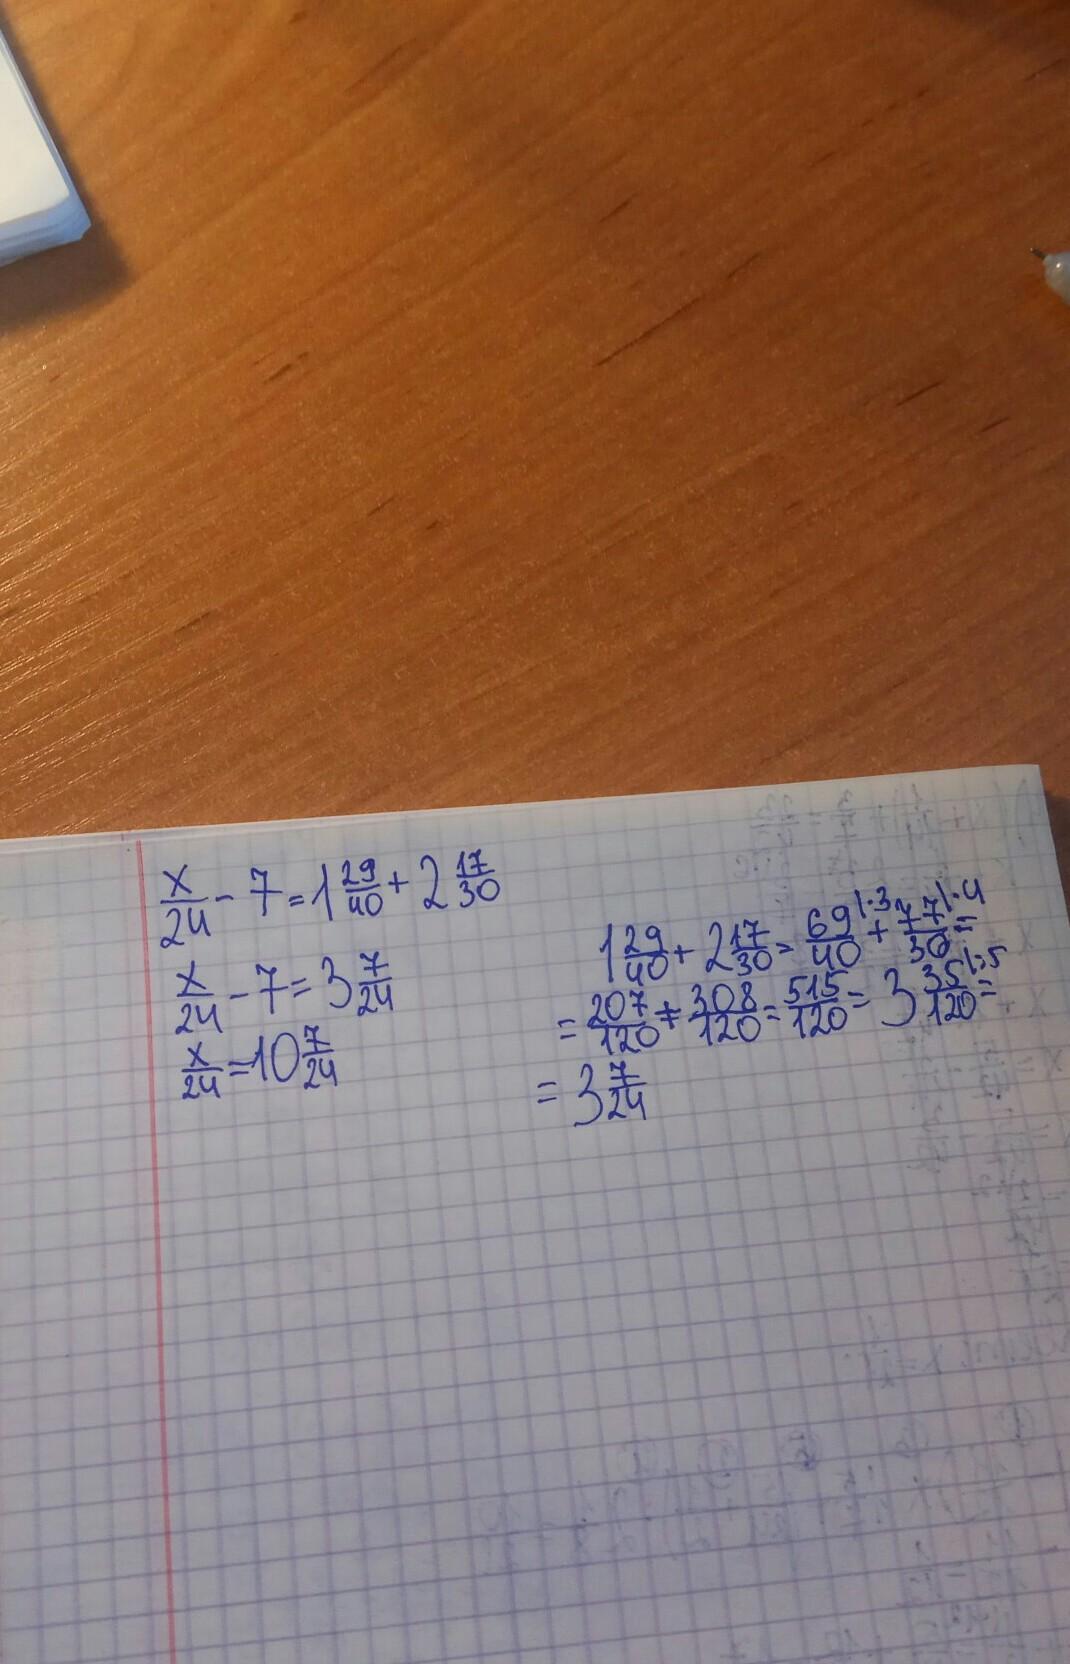 x/24 - 7 = 1 29/40 + 2 17/30
x/24 - 7 = 3 7/24
x/24 = 10 7/24
1 29/40 + 2 17/30 = 69/40 |·3 + 77/30 |·4 =
= 207/120 + 308/120 = 515/120 = 3 35/120 |:5 =
= 3 7/24